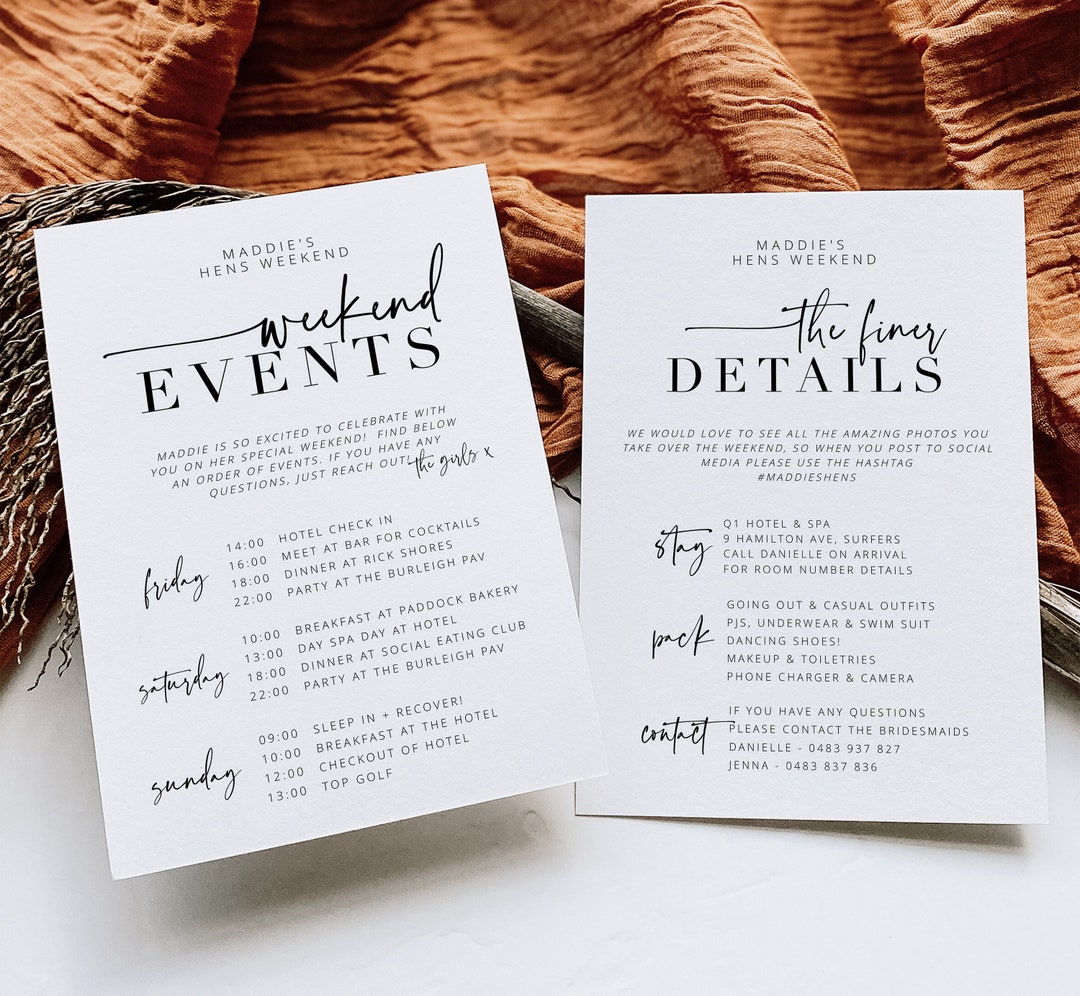 MADDIE'S
HENS WEEKEND
weekend
EVENTS
MADDIE IS SO EXCITED TO CELEBRATE WITH
YOU ON HER SPECIAL WEEKEND! FIND BELOW
AN ORDER OF EVENTS. IF YOU HAVE ANY
QUESTIONS, JUST REACH OUT! the girls x
friday
14:00 HOTEL CHECK IN
16:00 MEET AT BAR FOR COCKTAILS
18:00 DINNER AT RICK SHORES
22:00 PARTY AT THE BURLEIGH PAV
saturday
10:00 BREAKFAST AT PADDOCK BAKERY
13:00 DAY SPA DAY AT HOTEL
18:00 DINNER AT SOCIAL EATING CLUB
22:00 PARTY AT THE BURLEIGH PAV
sunday
09:00 SLEEP IN + RECOVER!
10:00 BREAKFAST AT THE HOTEL
12:00 CHECKOUT OF HOTEL
13:00 TOP GOLF
MADDIE'S
HENS WEEKEND
the finer
DETAILS
WE WOULD LOVE TO SEE ALL THE AMAZING PHOTOS YOU
TAKE OVER THE WEEKEND, SO WHEN YOU POST TO SOCIAL
MEDIA PLEASE USE THE HASHTAG
#MADDIESHENS
stay
Q1 HOTEL & SPA
9 HAMILTON AVE, SURFERS
CALL DANIELLE ON ARRIVAL
FOR ROOM NUMBER DETAILS
pack
GOING OUT & CASUAL OUTFITS
PJS, UNDERWEAR & SWIM SUIT
DANCING SHOES!
MAKEUP & TOILETRIES
PHONE CHARGER & CAMERA
contact
IF YOU HAVE ANY QUESTIONS
PLEASE CONTACT THE BRIDESMAIDS
DANIELLE - 0483 937 827
JENNA - 0483 837 836